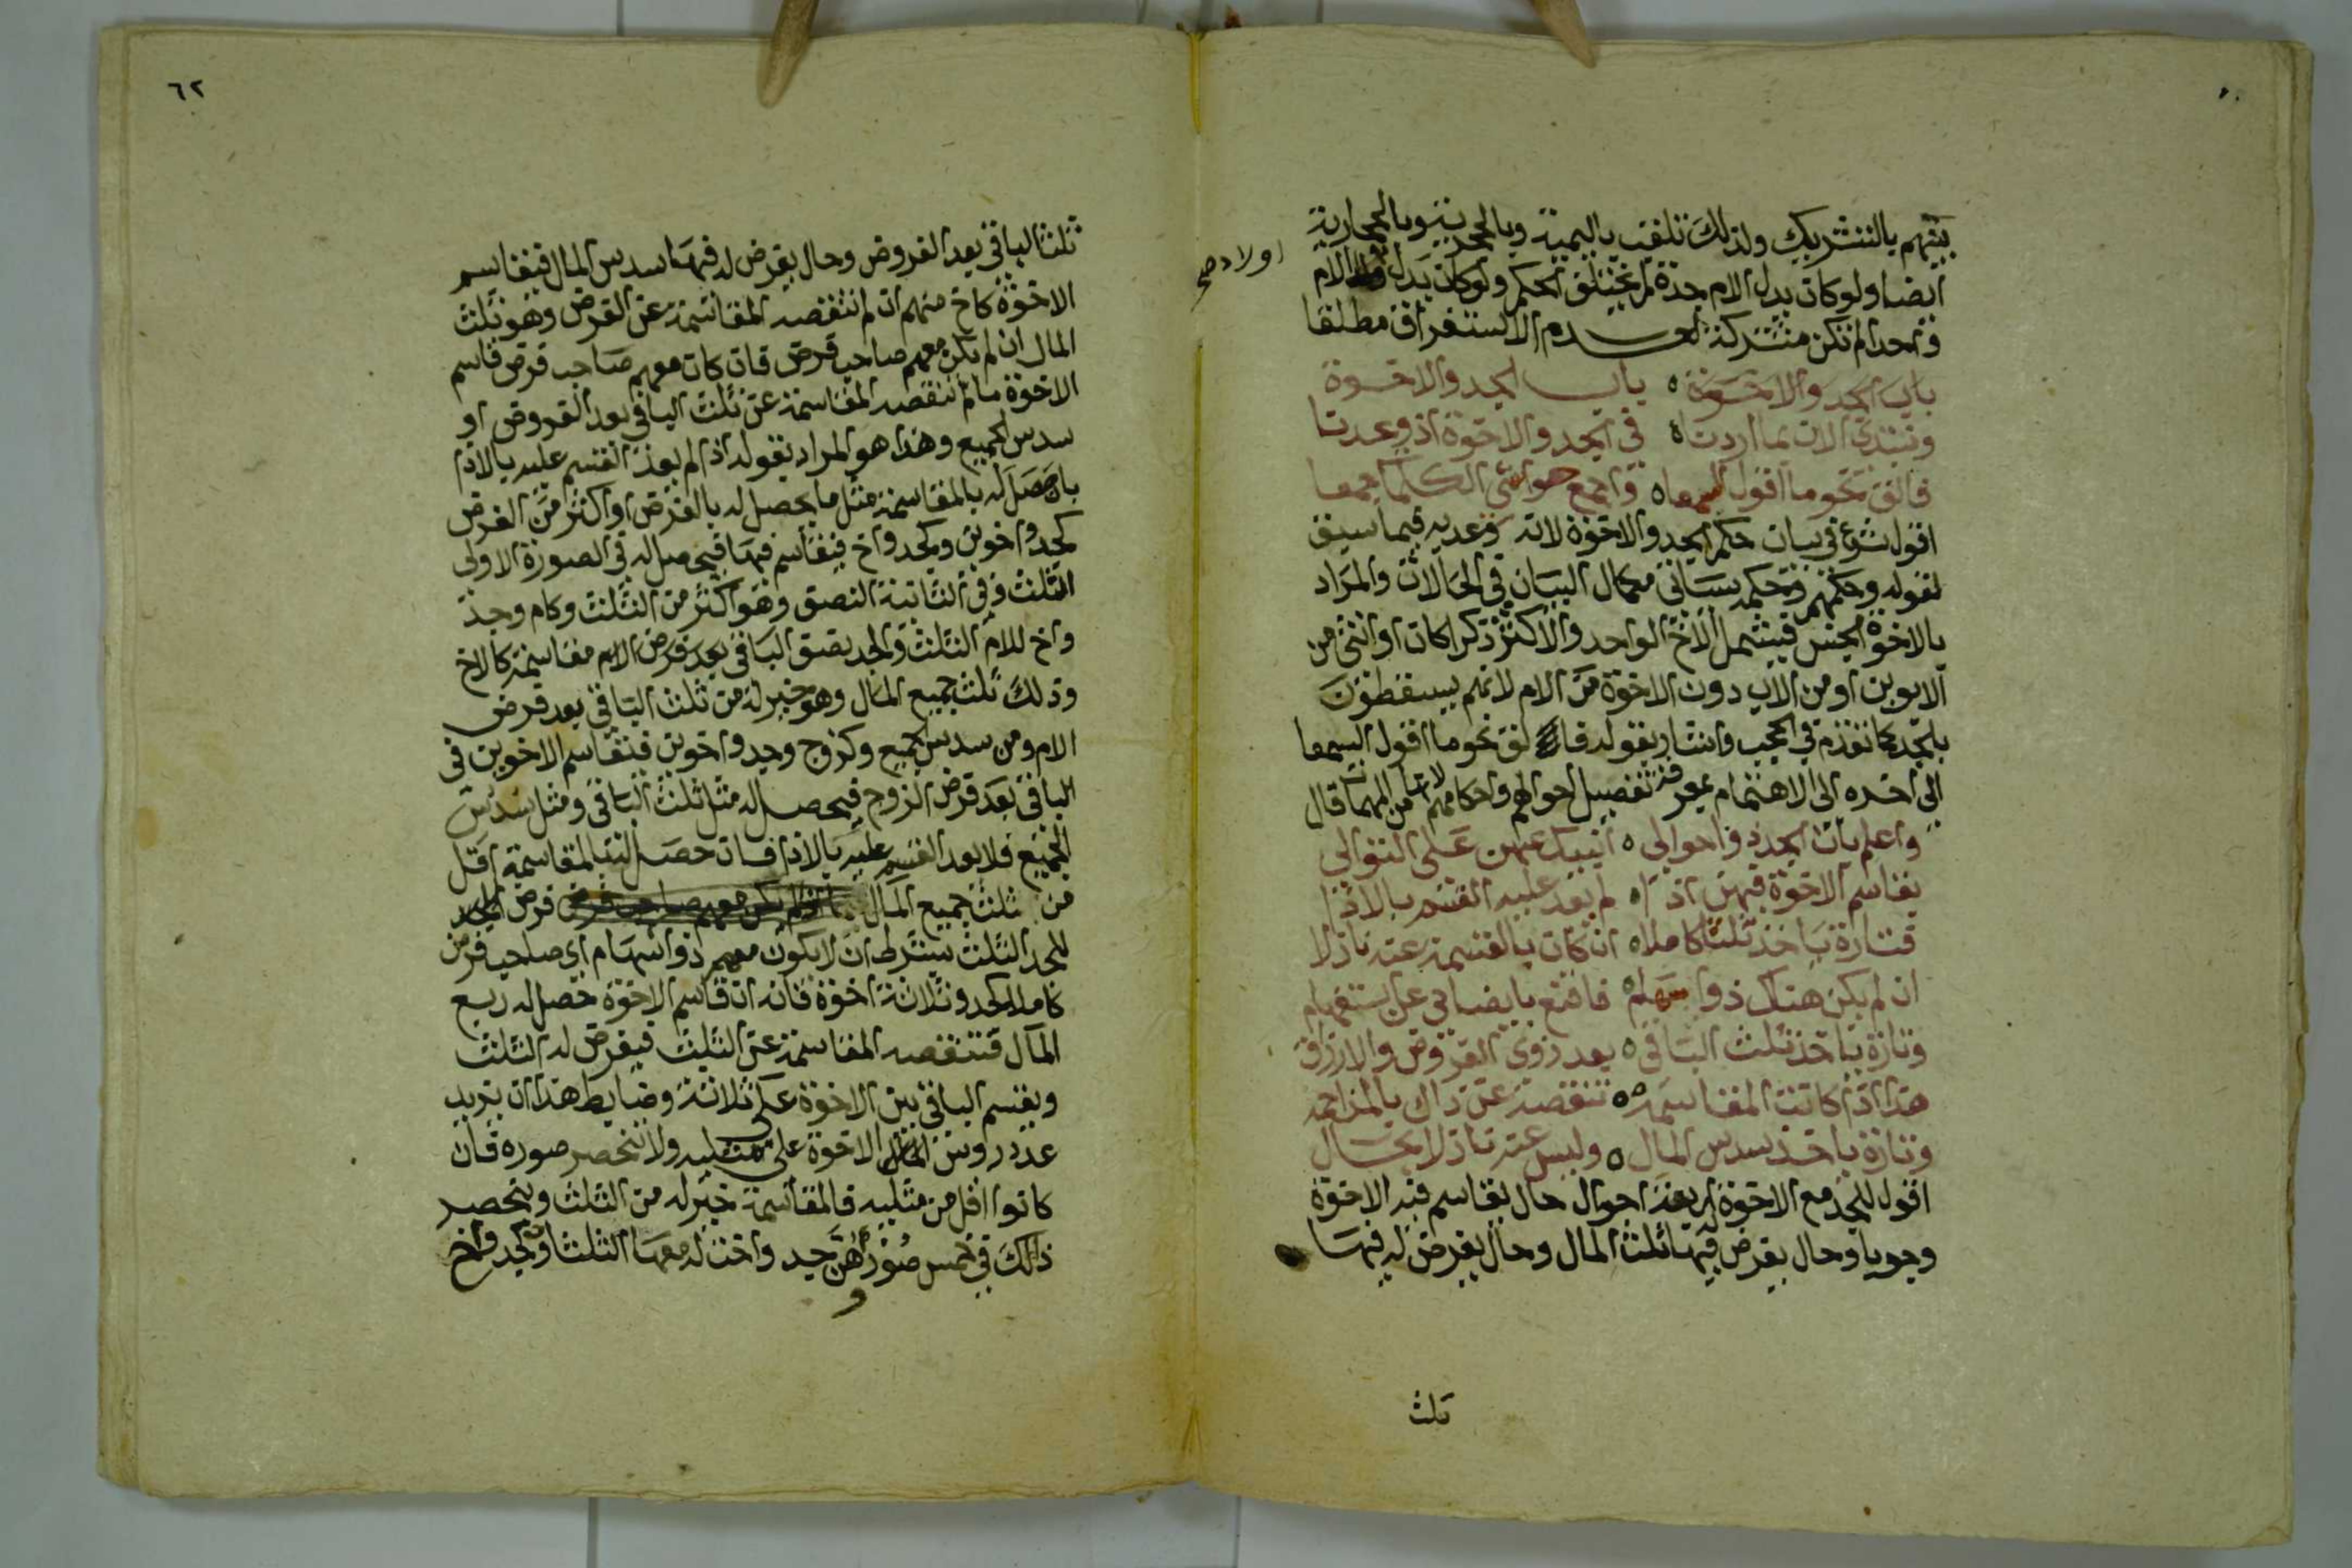 بينهم بالتشريك ولذلك تلقب باليمية وبالحجرية وبالحمارية
ايضا ولو كان بدل الام جدة لم يختلف الحكم ولو كان بدل الام
اولاد صح
واحدا لم تكن مشتركة لعدم الاستغراق مطلقا
باب الجد والاخوة ٥ باب الجد والاخوة
ونبتدي الان بما اردنا ٥ في الجد والاخوة اذ وعدنا
فالق نحو ما اقول السمعا ٥ واجمع حواشي الكلما جمعا
اقول شرع في بيان حكم الجد والاخوة لانه وعد به فيما سبق
بقوله وحكمهم وحكمه سياتي مكمل البيان في الحالات والمراد
بالاخوة الجنس فيشمل الاخ الواحد والاكثر ذكرا كان او انثى من
الابوين او من الاب دون الاخوة من الام لانهم يسقطون
بالجد كما تقدم في الحجب واشار بقوله فالق نحو ما اقول السمعا
الى اخره الى الاهتمام بمعرفة تفصيل احوالهم واحكامهم لانها من المهمات قال
واعلم بان الجد ذو احوالى ٥ انبيك عنهن على التوالي
يقاسم الاخوة فيهن اذا ٥ لم يعد عليه القسم بالاذا
فتارة ياخذ ثلثا كاملا ٥ ان كان بالقسمة عنه نازلا
ان لم يكن هناك ذوا سهام ٥ فاقنع بايضاحي عن استفهام
وتارة ياخذ ثلث الباقي ٥ بعد ذوي الفروض والارزاق
هذا اذا كانت المقاسمه ٥ تنقصه عن ذاك بالمزاحمه
وتارة ياخذ سدس المال ٥ وليس عنه نازلا بحال
اقول للجد مع الاخوة اربعة احوال حال يقاسم فيه الاخوة
وجوبا وحال يفرض له فيها ثلث المال وحال يفرض له فيها
ثلث
٦٢
ثلث الباقي بعد الفروض وحال يفرض له فيها سدس المال فيقاسم
الاخوة كاخ منهم ان لم تنقصه المقاسمة عن الفرض وهو ثلث
المال ان لم يكن معهم صاحب فرض فان كان معهم صاحب فرض قاسم
الاخوة ما لم تنقصه المقاسمة عن ثلث الباقي بعد الفروض او
سدس الجميع وهذا هو المراد بقوله اذا لم يعد القسم عليه بالاذا
بان حصل له بالمقاسمة مثل ما يحصل له بالفرض او اكثر من الفرض
كجد واخوين وكجد واخ فيقاسم فيها فيحصل له في الصورة الاولى
الثلث وفي الثانية النصف وهو اكثر من الثلث وكام وجد
واخ للام الثلث والجد يصف الباقي بعد فرض الام مقاسمة كالاخ
وذلك ثلث جميع المال وهو خير له من ثلث الباقي بعد فرض
الام ومن سدس الجميع وكزوج وجد واخوين فيقاسم الاخوين في
الباقي بعد فرض الزوج فيحصل له مثل ثلث الباقي ومثل سدس
الجميع فلا يعد القسم عليه بالاذا فان حصل له بالمقاسمة اقل
من ثلث جميع المال فرض
للجد الثلث بشرط ان لا يكون معهم ذوا سهام اي صاحب فرض
كاملا كجد وثلاثة اخوة فانه ان قاسم الاخوة حصل له ربع
المال فتنقصه المقاسمة عن الثلث فيفرض له الثلث
ويقسم الباقي بين الاخوة على ثلاثة وضابط هذا ان يزيد
عدد رؤس الاخوة على مثليه ولا تنحصر صوره فان
كانوا اقل من مثليه فالمقاسمة خير له من الثلث وينحصر
ذلك في خمس صور وهن جد واخت له معها الثلثان وكجد واخ